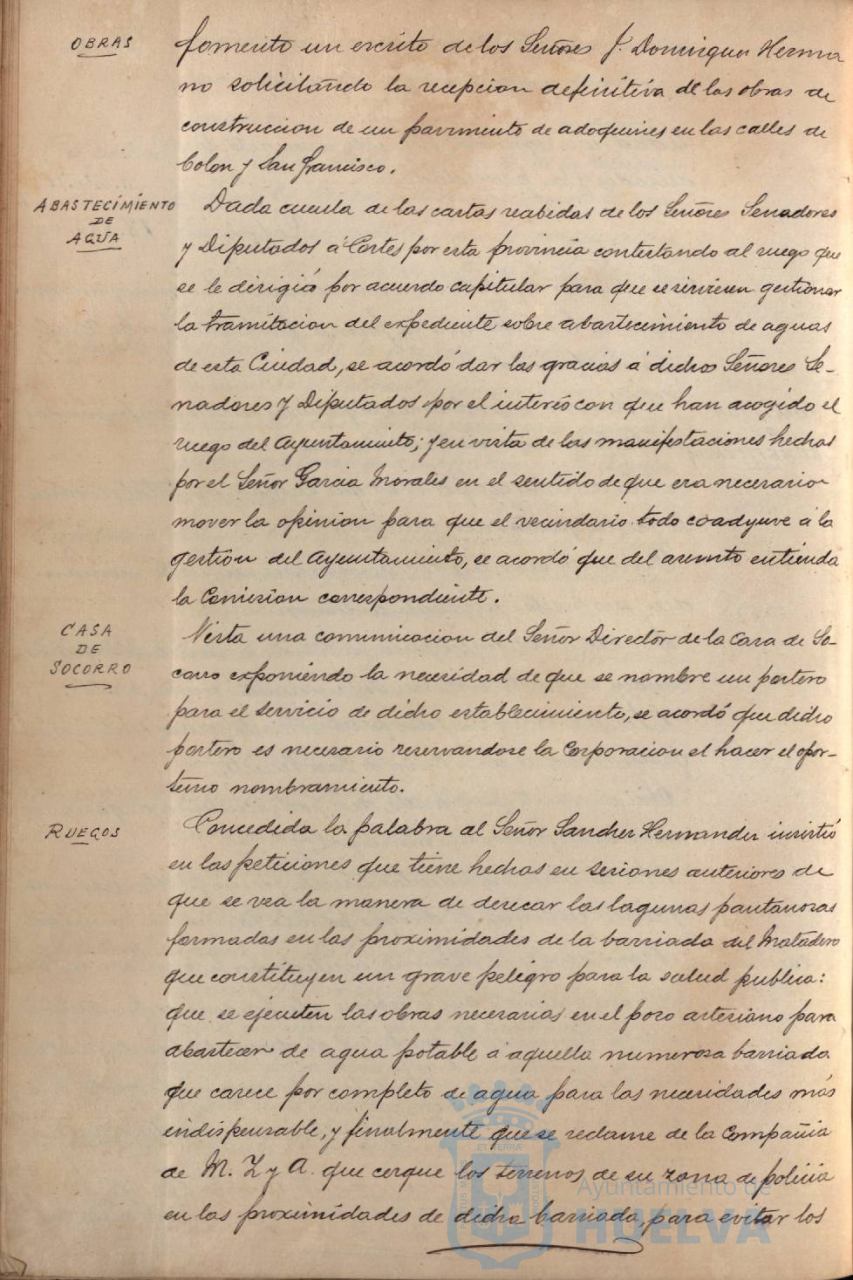 OBRAS
fomento un escrito de los Señores J. Dominguez Herma
no solicitando la recepcion definitiva de las obras de
construccion de un pavimento de adoquines en las calles de
Colon y San Francisco.
ABASTECIMIENTO
DE
AGUA
Dada cuenta de las cartas recibidas de los Señores Senadores
y Diputados á Cortes por esta provincia contestando al ruego que
se le dirigió por acuerdo capitular para que se sirviesen gestionar
la tramitacion del expediente sobre abastecimiento de aguas
de esta Ciudad, se acordó dar las gracias á dichos Señores Se-
nadores y Diputados por el interés con que han acogido el
ruego del Ayuntamiento; y en vista de las manifestaciones hechas
por el Señor Garcia Morales en el sentido de que era necesario
mover la opinion para que el vecindario todo coadyuve á la
gestión del Ayuntamiento, se acordó que del asunto entienda
la Comision correspondiente.
CASA
DE
SOCORRO
Vista una comunicacion del Señor Director de la Casa de So-
corro exponiendo la necesidad de que se nombre un portero
para el servicio de dicho establecimiento, se acordó que dicho
portero es necesario reservandose la Corporacion el hacer el opor-
tuno nombramiento.
RUEGOS
Concedida la palabra al Señor Sanchez Hernandez insistió
en las peticiones que tiene hechas en sesiones anteriores de
que se vea la manera de desecar las lagunas pantanosas
formadas en las proximidades de la barriada del Matadero
que constituyen un grave peligro para la salud publica:
que se ejecuten las obras necesarias en el pozo artesiano para
abastecer de agua potable á aquella numerosa barriada
que carece por completo de agua para las necesidades más
indispensable, y finalmente que se reclame de la Compañia
de M. Z y A. que cerque los terrenos de su zona de policia
en las proximidades de dicha barriada, para evitar los
Ayuntamiento de
HUELVA